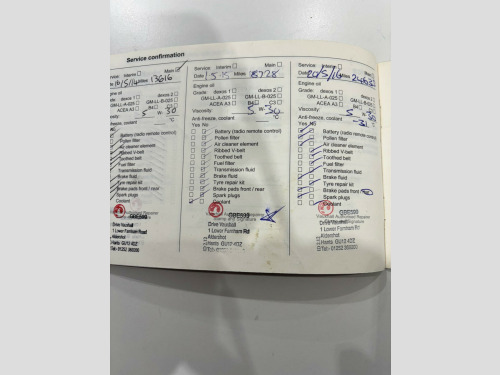 Service confirmation
Service Interim Main
Miles 13616
Engine oil
Grade: dexos 1 dexos 2
GM-LL-A-025 GM-LL-B-025
ACEA A3 B4 C3
Viscosity: 5 W- 30
Anti-freeze, coolant °C
Yes No
Battery (radio remote control)
Pollen filter
Air cleaner element
Ribbed V-belt
Toothed belt
Fuel filter
Transmission fluid
Brake fluid
Tyre repair kit
Brake pads front / rear
Spark plugs
Coolant
Drive Vauxhall
1 Lower Farnham Rd
Aldershot
Hants GU12 4DZ
Tel:- 01252 360300
Service Interim Main
Date Miles
Engine oil
Grade: dexos 1 dexos 2
GM-LL-A-025 GM-LL-B-025
ACEA A3 B4 C3
Viscosity: 5 W- 30
Anti-freeze, coolant °C
Yes No
Battery (radio remote control)
Pollen filter
Air cleaner element
Ribbed V-belt
Toothed belt
Fuel filter
Transmission fluid
Brake fluid
Tyre repair kit
Brake pads front / rear
Spark plugs
Coolant
Drive Vauxhall
1 Lower Farnham Rd
Aldershot
Hants GU12 4DZ
Tel:- 01252 360300
Service: Interim Main
Date 20/5/16 Miles
Engine oil
Grade: dexos 1 dexos 2
GM-LL-A-025 GM-LL-B-025
ACEA A3 B4 C3
Viscosity: 5 W- 30
Anti-freeze, coolant °C
Yes No
Battery (radio remote control)
Pollen filter
Air cleaner element
Ribbed V-belt
Toothed belt
Fuel filter
Transmission fluid
Brake fluid
Tyre repair kit
Brake pads front
Spark plugs
Coolant
Drive Vauxhall
1 Lower Farnham Rd
Aldershot
Hants GU12 4DZ
Tel:- 01252 360300